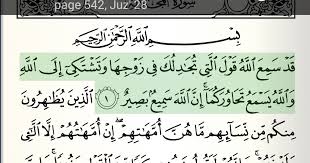 page 542, Juz' 28
بِسْمِ ٱللَّهِ ٱلرَّحْمَٰنِ ٱلرَّحِيمِ
قَدْ سَمِعَ ٱللَّهُ قَوْلَ ٱلَّتِى تُجَٰدِلُكَ فِى زَوْجِهَا وَتَشْتَكِىٓ إِلَى ٱللَّهِ
وَٱللَّهُ يَسْمَعُ تَحَاوُرَكُمَآ ۚ إِنَّ ٱللَّهَ سَمِيعٌۢ بَصِيرٌ ١ ٱلَّذِينَ يُظَٰهِرُونَ
مِنكُم مِّن نِّسَآئِهِم مَّا هُنَّ أُمَّهَٰتِهِمْ ۖ إِنْ أُمَّهَٰتُهُمْ إِلَّا ٱلَّٰٓـِٔى